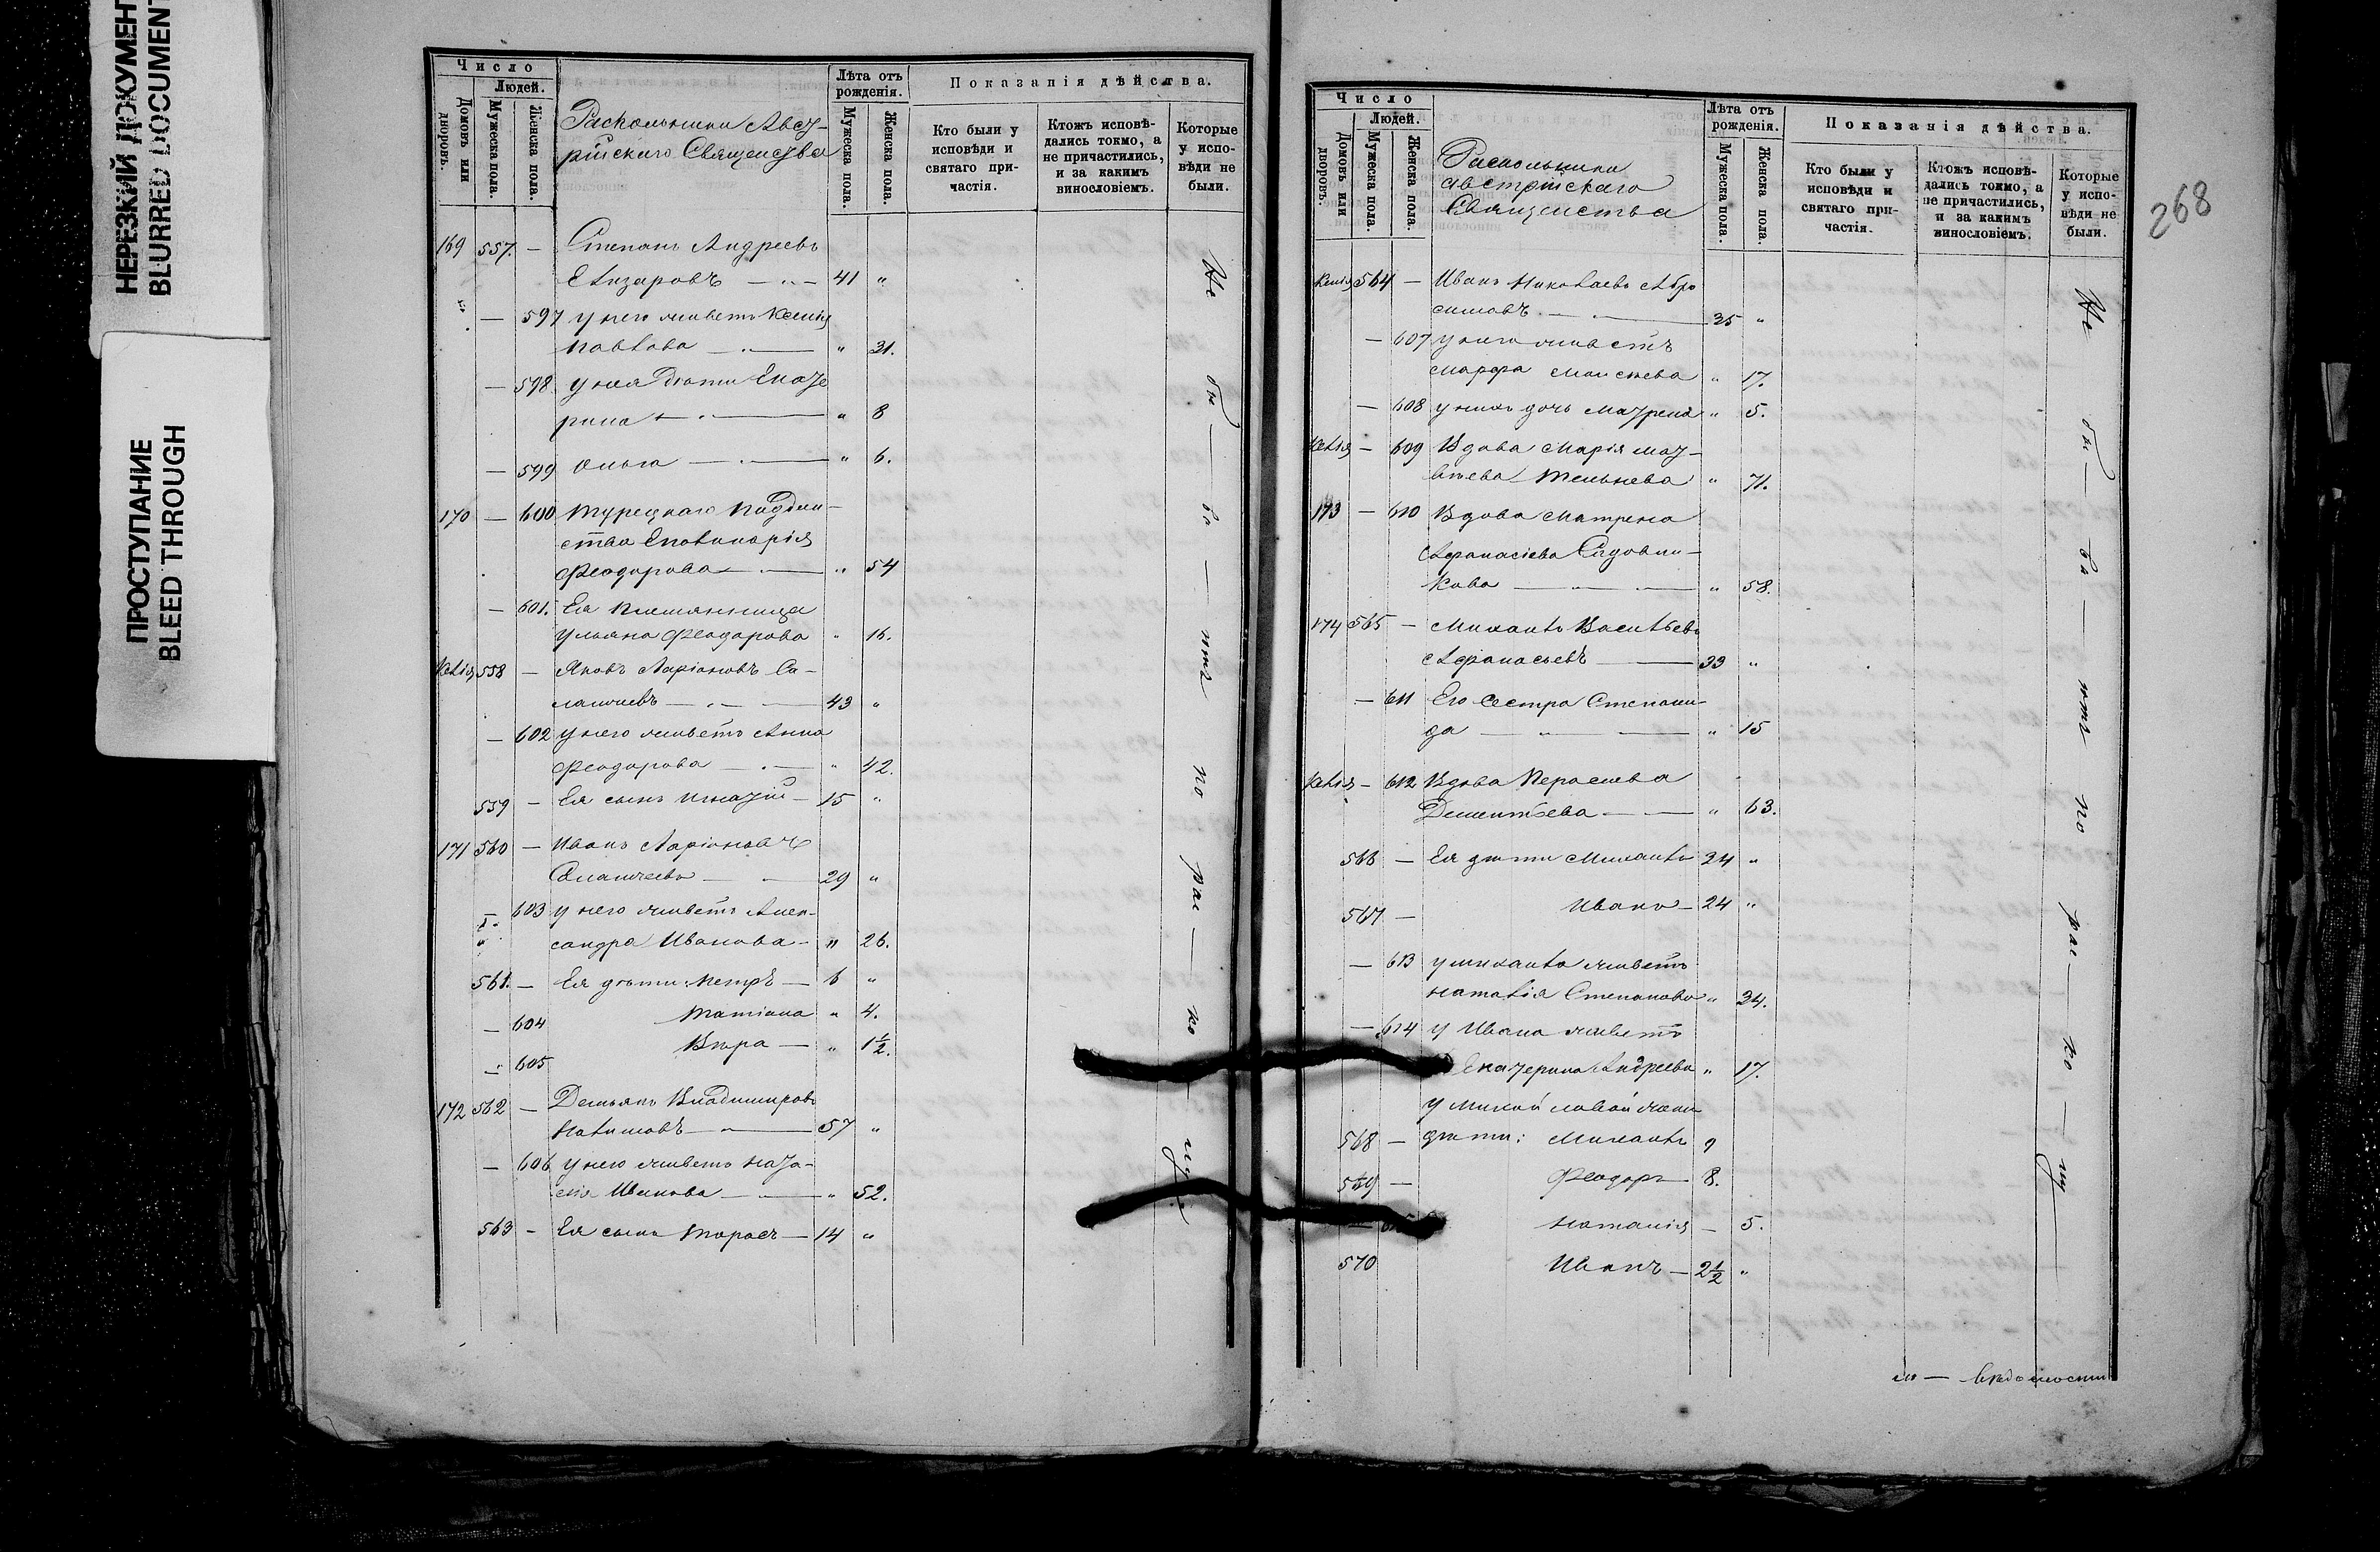 НЕРЕЗКИЙ ДОКУМЕНТ
BLURRED DOCUMENT
ПРОСТУПАНИЕ
BLEED THROUGH
Число
Людей.
Домовъ или дворовъ.
Мужеска пола.
Женска пола.
Раскольники Авст-
рійскаго Священства
Лѣта отъ рожденія.
Мужеска пола.
Женска пола.
Показанія дѣйства.
Кто были у исповѣди и святаго при-частія.
Ктожъ исповѣ-дались токмо, а не причастились, и за какимъ винословіемъ.
Которые у испо-вѣди не были.
169 557. — Степанъ Андреевъ
Елизаровъ — 41 "
— 597 у него живетъ Ксенія
Павлова — " 31.
— 598. у нея дѣти Екате
рина — " 8
— 599 Ольга — " 6.
170 — 600 Турецкаго поддан-
ства Аполинарія
Феодорова — " 54
— 601. Ея племянница
Ульяна Феодорова " 16.
Келія 558 — Яковъ Ларіоновъ Са-
— 43 "
— 602 у него живетъ Анна
Феодорова — " 42.
559 — Ея сынъ Игнатій — 15 "
171 560 — Иванъ Ларіоновъ
— 29 "
603 у него живетъ Алек-
сандра Иванова — " 26.
561. — Ея дѣти: Петръ — 6 "
— 604 Татіана " 4.
— 605 Вѣра — " 1½.
172 562 — Демьянъ Владимировъ
— 57 "
— 606 у него живетъ Ната-
лія Иванова — " 52.
563 — Ея сынъ Тарасъ — 14 "
Не бы — въ — по рас — ко — лу
Число
Людей.
Домовъ или дворовъ.
Мужеска пола.
Женска пола.
Раскольники
австрійскаго
Священства
Лѣта отъ рожденія.
Мужеска пола.
Женска пола.
Показанія дѣйства.
Кто были у исповѣди и святаго при-частія.
Ктожъ исповѣ-дались токмо, а не причастились, и за какимъ винословіемъ.
Которые у испо-вѣди не были.
268
Келія 564 — Иванъ Николаевъ Абро
симовъ — 35 "
— 607 у него живетъ
Марфа Моисеева " 17.
— 608 у нихъ дочь Матрена " 5.
Келія — 609 Вдова Марія Мат-
вѣева " 71.
173 — 610 Вдова Матрена
Афанасіева Садовни-
кова — " 58.
174 565 — Михаилъ Васильевъ
Афанасьевъ — 33 "
— 611 Его сестра Степани-
да — " 15
Келія — 612 Вдова
Дементьева — " 63.
566 — Ея дѣти Михаилъ 34 "
567 — Иванъ — 24 "
— 613 у Михаила живетъ
Наталія Степанова " 34.
— 614 у Ивана живетъ
Екатерина Андреева " 17.
у Михайловой жены
568 — дѣти: Михаилъ 9
569 — Феодоръ 8.
Наталія — 5.
570 Иванъ — 2½ "
Не бы — въ — по рас — ко — лу